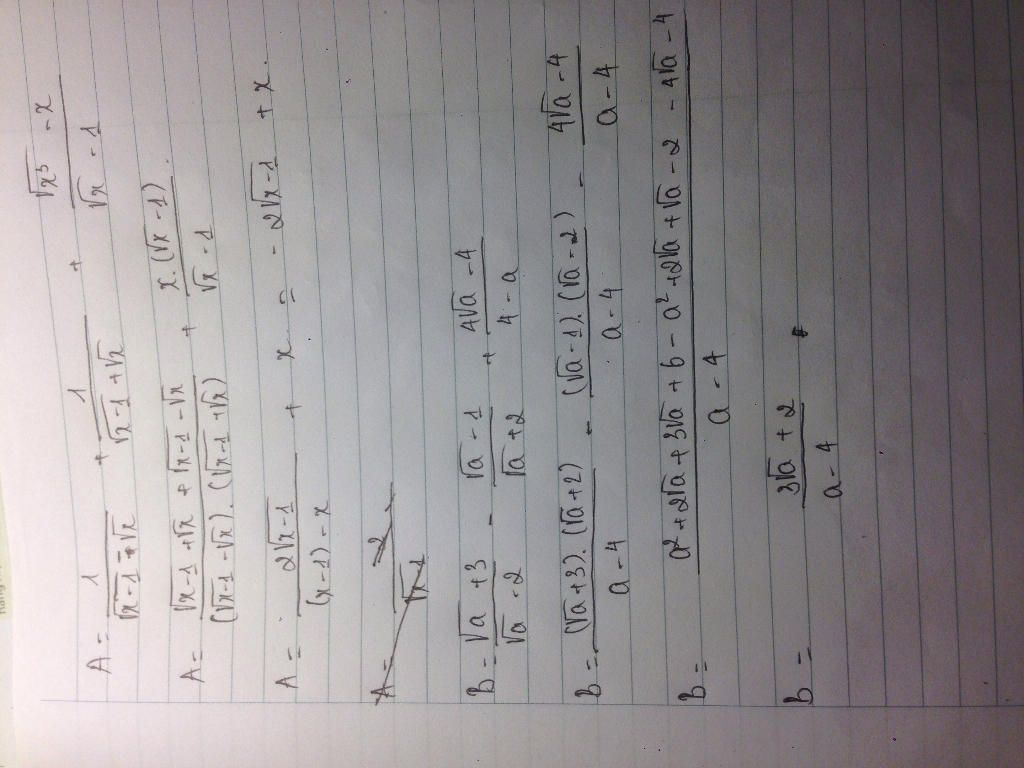 A = 1/(√(x-1) - √x) + 1/(√(x-1) + √x) + (√x³ - x)/(√x - 1)
A = (√(x-1) + √x + √(x-1) - √x)/((√(x-1) - √x).(√(x-1) + √x)) + x.(√x - 1)/(√x - 1).
A = 2√(x-1)/((x-1) - x) + x = -2√(x-1) + x.
B = (√a + 3)/(√a - 2) - (√a - 1)/(√a + 2) + (4√a - 4)/(4 - a)
B = (√a + 3).(√a + 2)/(a - 4) - (√a - 1).(√a - 2)/(a - 4) - (4√a - 4)/(a - 4)
B = (a² + 2√a + 3√a + 6 - a² + 2√a + √a - 2 - 4√a - 4)/(a - 4)
B = (3√a + 2)/(a - 4)